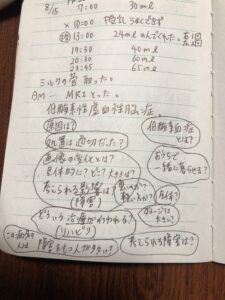 8/15 17:00 30ml
×10:00 陸乳うまくできず
13:00 24ml のんでくれた。
17:30 40ml
20:30 60ml
23:45 65ml
ミルクの量 散った。
AM… MRIとった。
低酸素性虚血性脳症。
原因は?
低酸素血症とは?
処置は適切だった?
画像の変化とは?
具体的に?どこ?大きさは?
おうちで一緒に暮らせる?
考えられる影響は(障害)
重いのか?軽いのか?
身体?
ダメージは大きい?
どういう治療がおこなわれる?(リハビリ)
この病気の人は障害をもつ人が多い?
考えられる障害は?